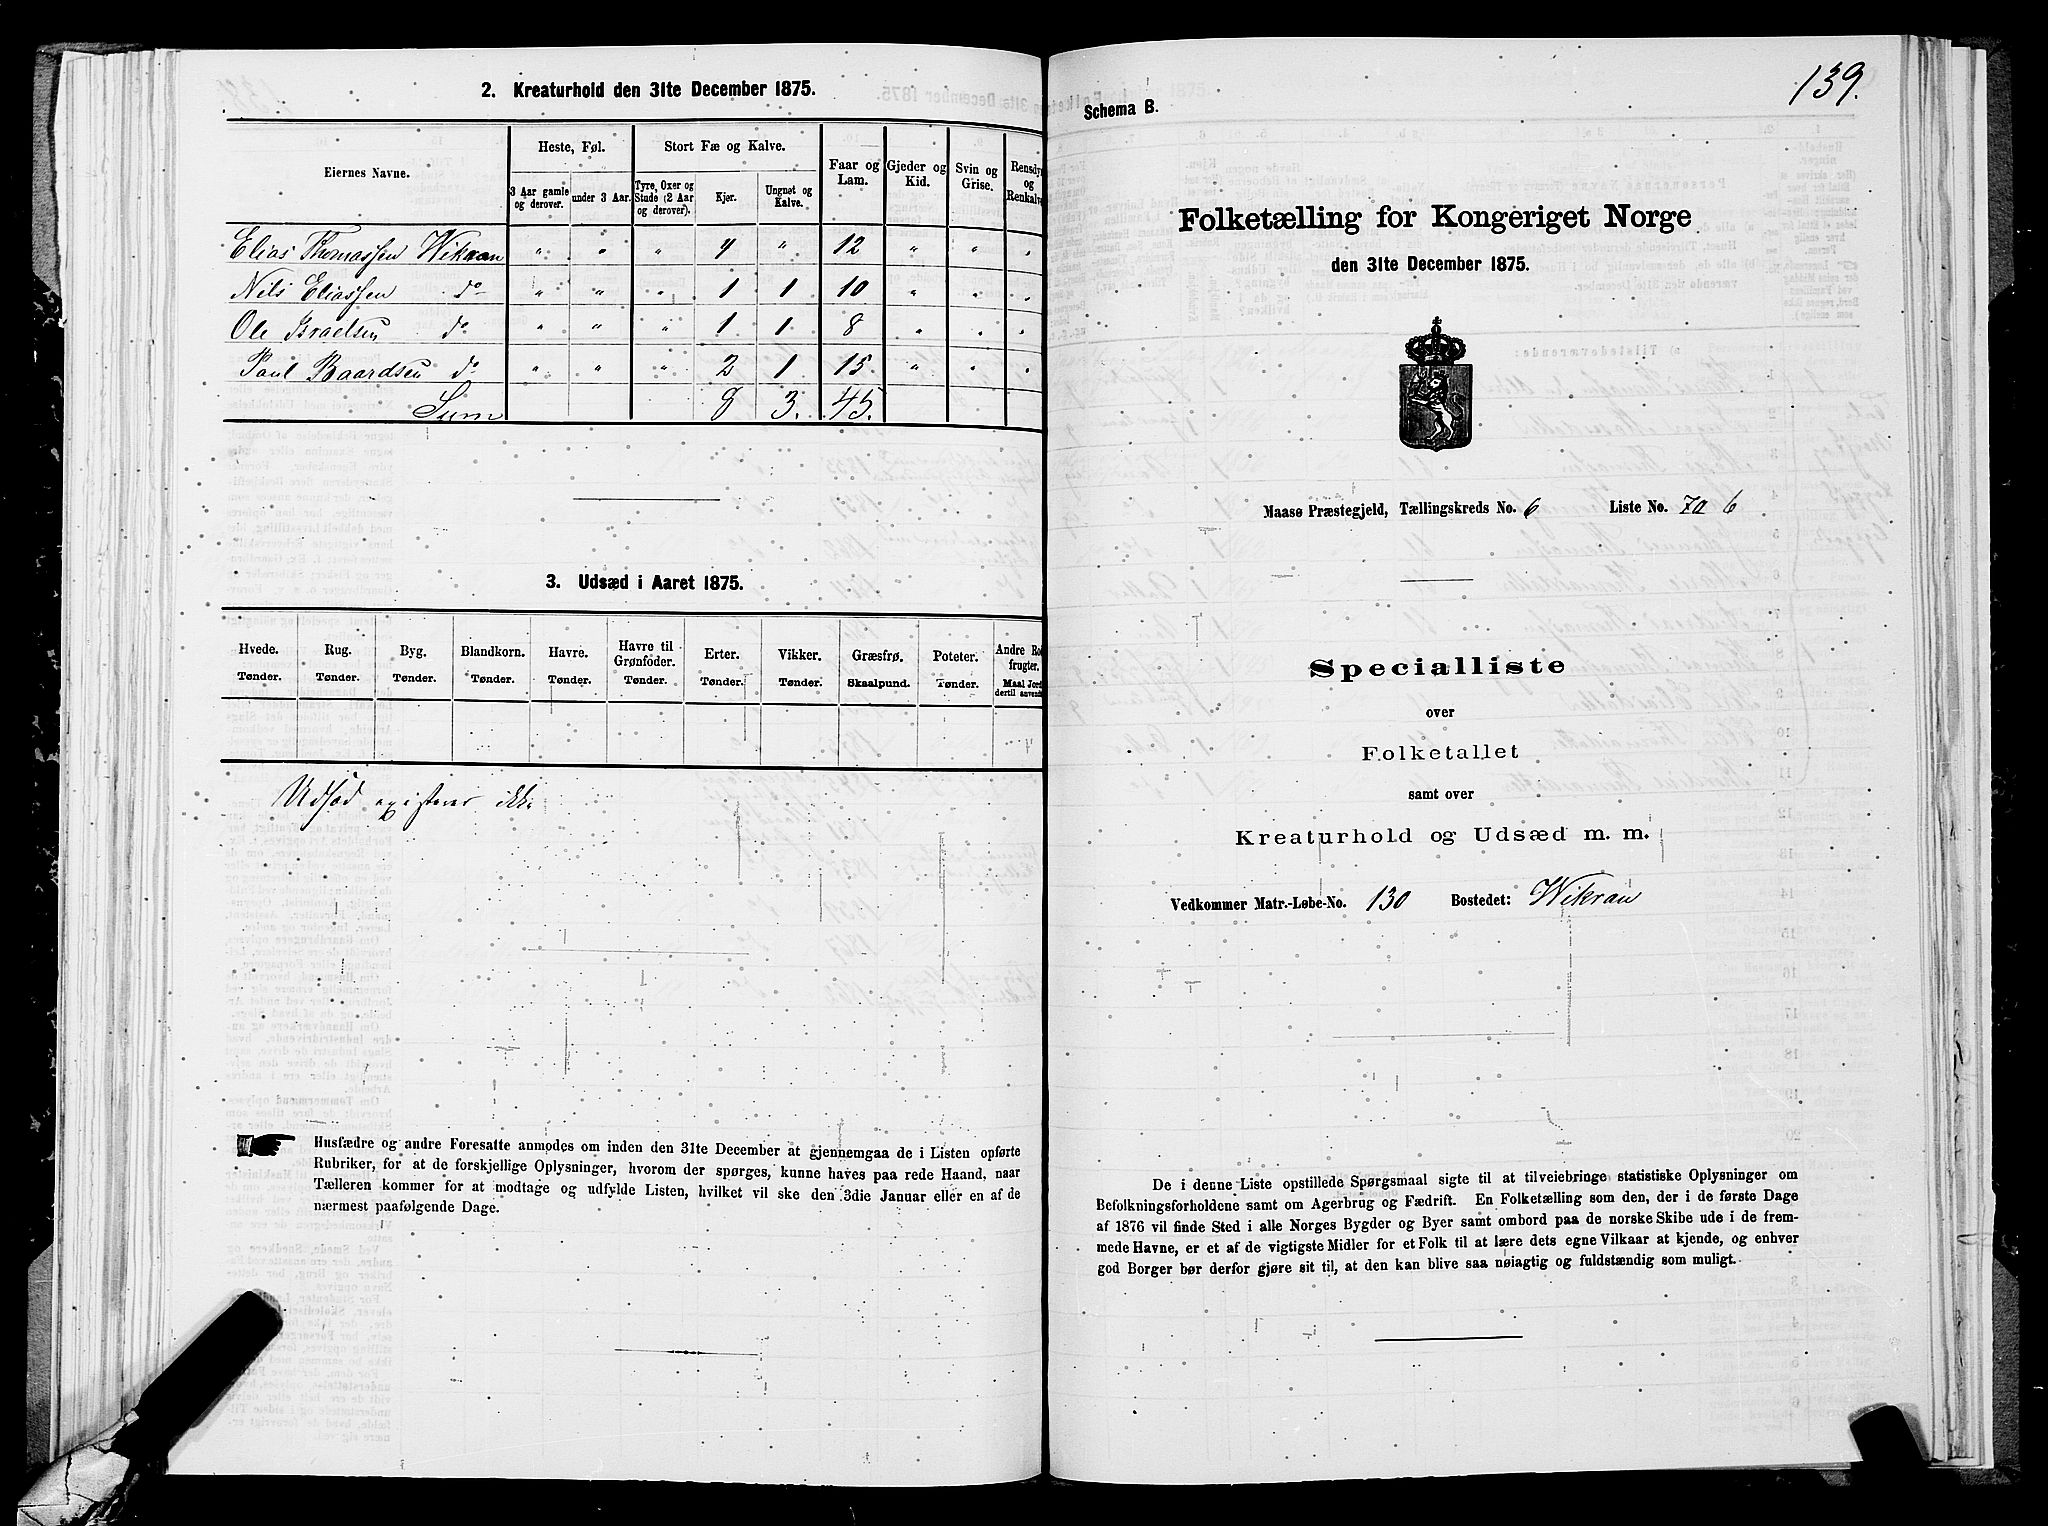 2. Kreaturhold den 31te December 1875.
Eiernes Navne.
Heste, Føl.
Stort Fæ og Kalve.
Faar og Lam.
Gjeder og Kid.
Svin og Grise.
Rensdyr og Renkalve
3 Aar gamle og derover.
under 3 Aar.
Tyre, Oxer og Stude (2 Aar og derover).
Kjer.
Ungnøt og Kalve.
Elias Thomassen Wikran " " " 4 " 12 " " "
Nils Eliassen do " " " 1 1 10 " " "
Ole Israelsen do " " " 1 1 8 " " "
Paul Baardsen do " " " 2 1 15 " " "
Sum 8 3. 45.
3. Udsæd i Aaret 1875.
Hvede. Tønder.
Rug. Tønder.
Byg. Tønder.
Blandkorn. Tønder.
Havre. Tønder.
Havre til Grønfoder. Tønder.
Erter. Tønder.
Vikker. Tønder.
Græsfrø. Skaalpund.
Poteter. Tønder.
Andre Ro frugter. Maal Jord dertil anvendt
Udsæd existerer ikke
Husfædre og andre Foresatte anmodes om inden den 31te December at gjennemgaa de i Listen opførte
Rubriker, for at de forskjellige Oplysninger, hvorom der spørges, kunne haves paa rede Haand, naar
Tælleren kommer for at modtage og udfylde Listen, hvilket vil ske den 3die Januar eller en af de
nærmest paafølgende Dage.
139.
Schema B.
Folketælling for Kongeriget Norge
den 31te December 1875.
Maasø Præstegjeld, Tællingskreds No. 6 Liste No. 70 6
Specialliste
over
Folketallet
samt over
Kreaturhold og Udsæd m. m.
Vedkommer Matr.-Løbe-No. 130 Bostedet: Wikran
De i denne Liste opstillede Spørgsmaal sigte til at tilveiebringe statistiske Oplysninger om
Befolkningsforholdene samt om Agerbrug og Fædrift. En Folketælling som den, der i de første Dage
af 1876 vil finde Sted i alle Norges Bygder og Byer samt ombord paa de norske Skibe ude i de frem-
mede Havne, er et af de vigtigste Midler for et Folk til at lære dets egne Vilkaar at kjende, og enhver
god Borger bør derfor gjøre sit til, at den kan blive saa nøiagtig og fuldstændig som muligt.